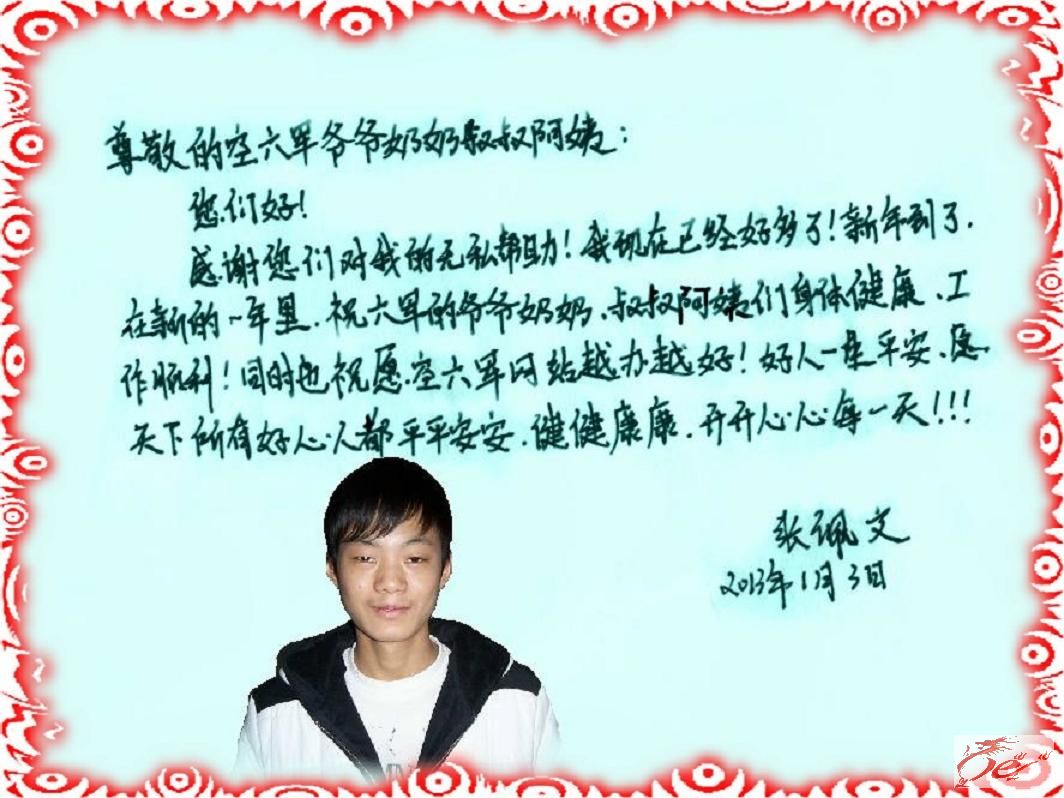 尊敬的空六军爷爷奶奶叔叔阿姨：
您们好！
感谢您们对我的无私帮助！我现在已经好多了！新年到了，
在新的一年里，祝六军的爷爷奶奶、叔叔阿姨们身体健康、工
作顺利！同时也祝愿空六军网站越办越好！好人一生平安、愿
天下所有好心人都平平安安、健健康康、开开心心每一天！！！
张珮文
2013年1月3日